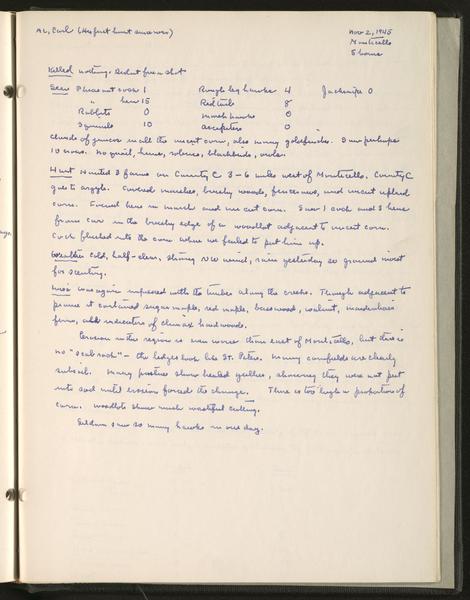 AL, Carl (His first hunt since war)
Nov 2, 1945
Monticello
5 hours
Killed nothing. Did not fire a shot
Seen Pheasant cock 1 Rough leg hawks 4 Jacksnipe 0
" hens 15 Redtails 8
Rabbits 0 marsh hawks 0
Squirrels 10 accipiters 0
Clouds of juncos in all the uncut corn, also many goldfinches. Saw perhaps
10 crows. No quail, huns, robins, blackbirds, owls.
Hunt Hunted 3 farms on County C 3-6 miles west of Monticello. County C
goes to Argyle. Covered marshes, brushy woods, fencerows, and uncut upland
corn. Found hens in marsh and uncut corn. Saw 1 cock and 3 hens
from car in the brushy edge of a woodlot adjacent to uncut corn.
Cock flushed into the corn where we failed to put him up.
Weather Cold, half-clear, strong NW wind, rain yesterday so ground moist
for scenting.
Misc was again impressed with the timber along the creeks. Though adjacent to
prairie it contained sugar maple, red maple, basswood, walnut, maidenhair
ferns, all indicators of climax hardwoods.
Erosion in this region is even worse than east of Monticello, but there is
no "scab rock" - the ledges look like St. Peter. Many cornfields are clearly
subsoil. Many pastures show healed gullies, showing they were not put
into sod until erosion forced the change. There is too high a proportion of
corn. Woodlots show much wasteful cutting.
Seldom saw so many hawks in one day.